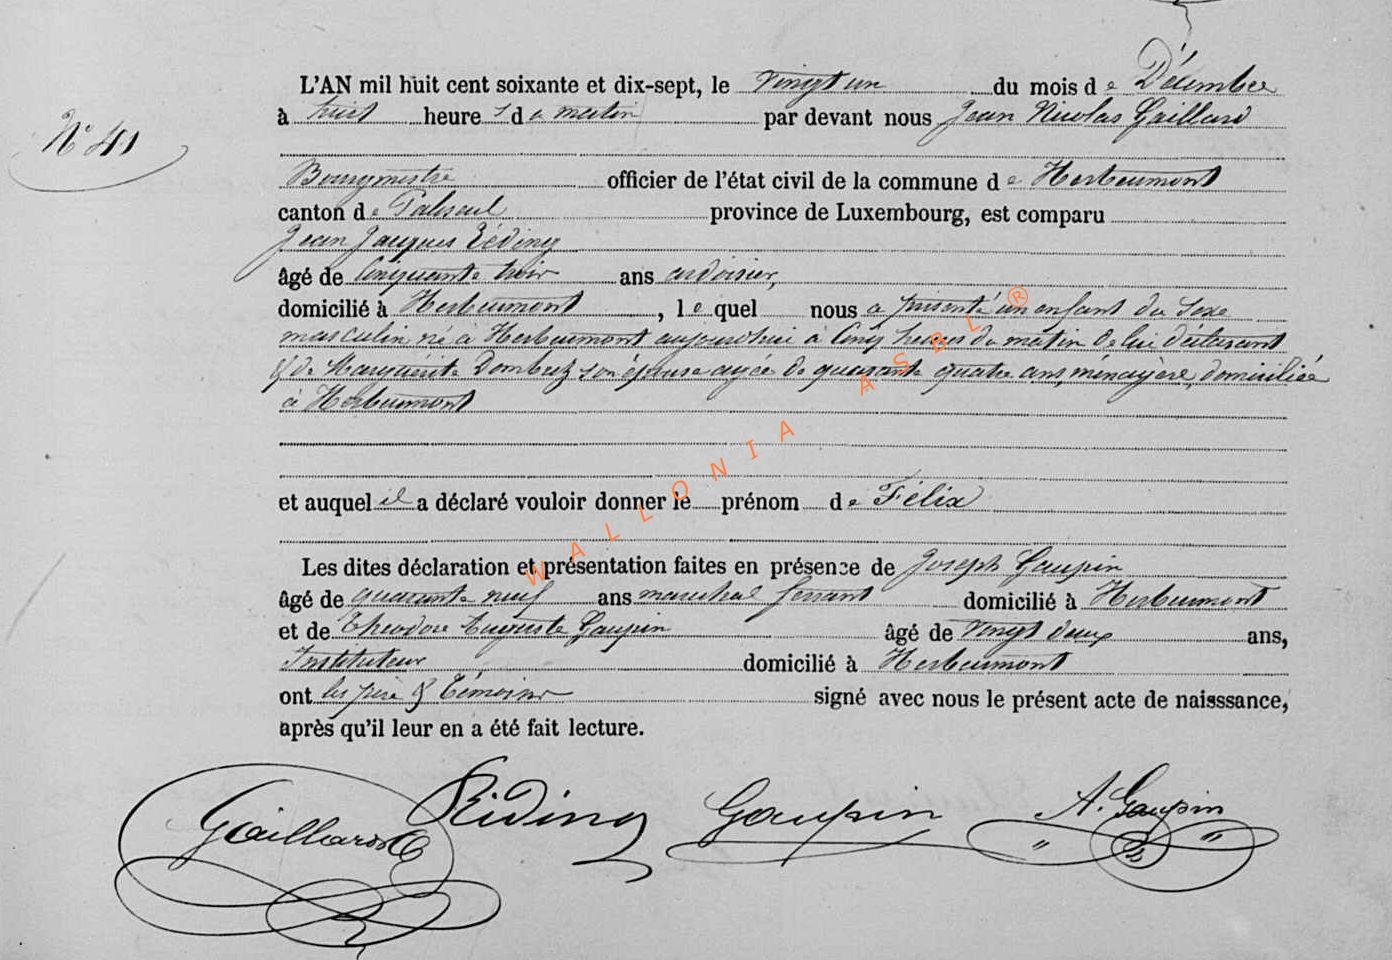 L'AN mil huit cent soixante et dix-sept, le vingt un du mois de Décembre
N° 41
à huit heures du matin par devant nous Jean Nicolas Gaillard
Bourgmestre officier de l'état civil de la commune de Herbeumont
canton de Paliseul province de Luxembourg, est comparu
Jean Jacques Réding
âgé de Cinquante trois ans ardoisier,
domicilié à Herbeumont, lequel nous a présenté un enfant du sexe
masculin né à Herbeumont aujourd'hui à Cinq heures du matin de lui déclarant
& de Marguérite Dombret son épouse agée de quarante quatre ans, ménagère, domiciliée
à Herbeumont
et auquel il a déclaré vouloir donner le prénom de Félix
Les dites déclaration et présentation faites en présence de Joseph Gaupin
âgé de quarante neuf ans marechal ferrant domicilié à Herbeumont
et de Théodore Auguste Gaupin âgé de vingt deux ans,
Instituteur domicilié à Herbeumont
ont les père & Témoins signé avec nous le présent acte de naisssance,
après qu'il leur en a été fait lecture.
Gaillard Réding Gaupin A. Gaupin
WALLONIA ASBL ®